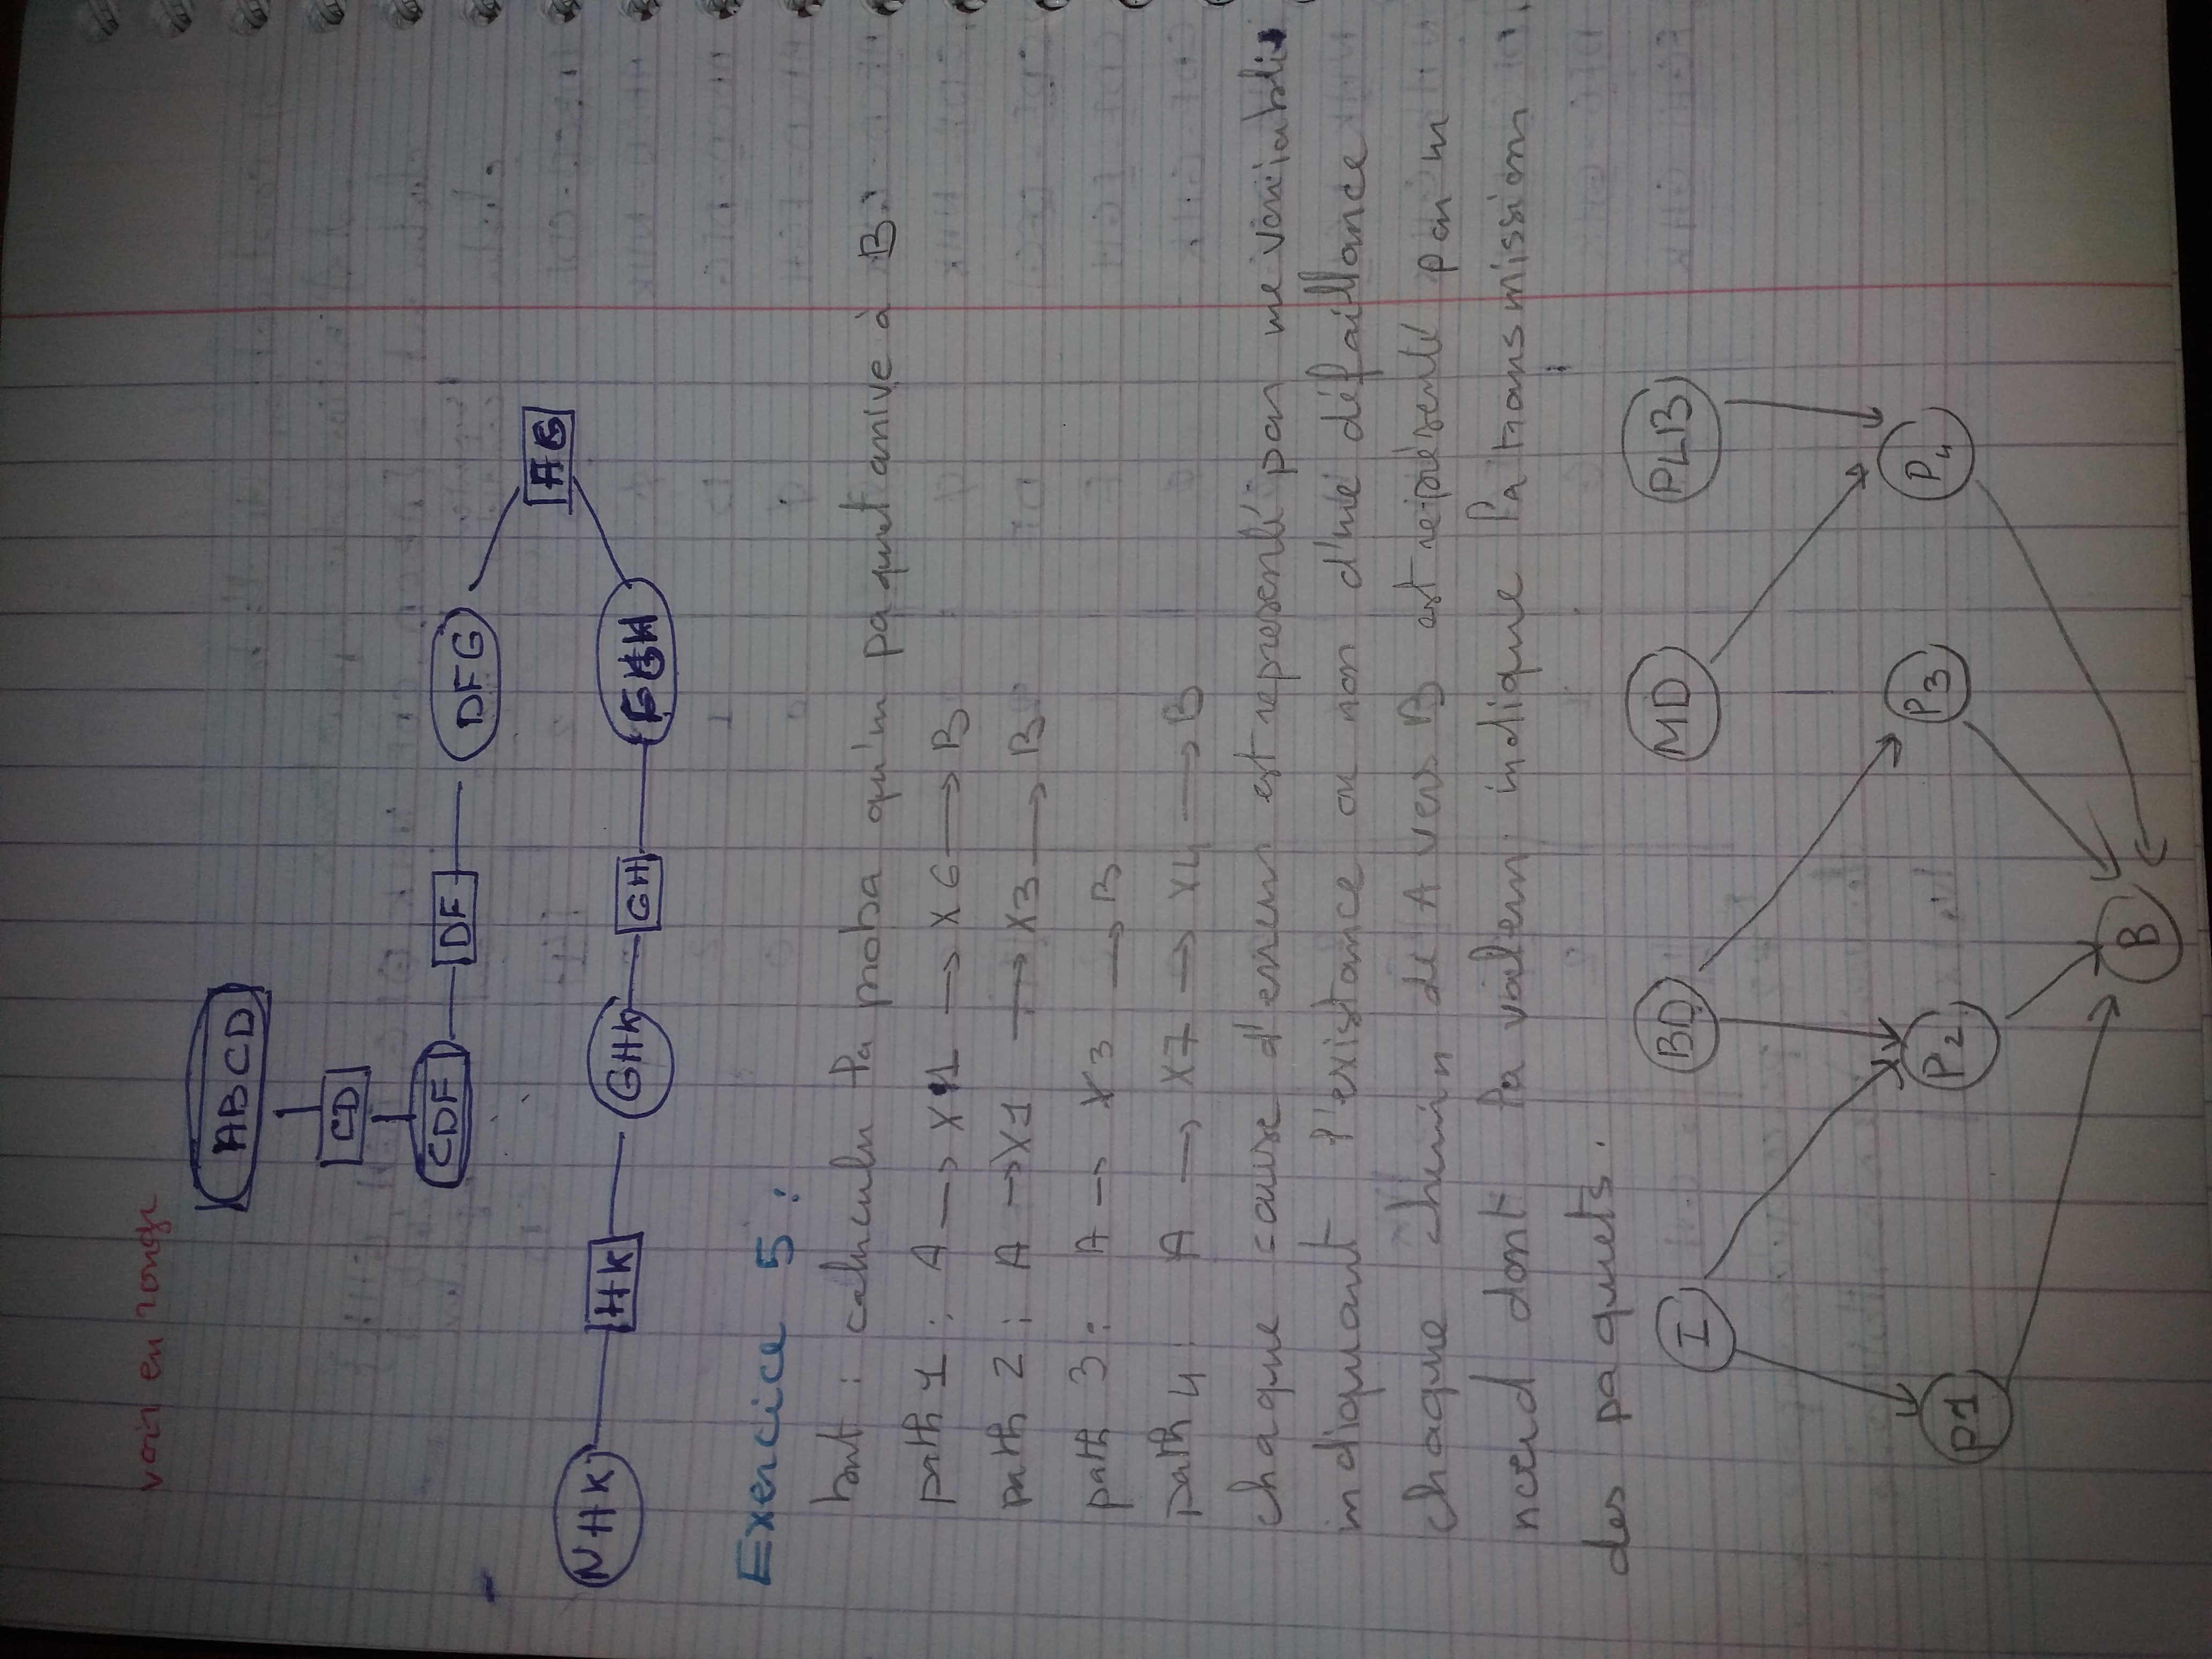 voir en rouge
ABCD
CD
CDF DF DFG
AG
NHK HK GHK GH FGH
Exercice 5 :
but : calculer la proba qu'un paquet arrive à B.
path 1 : A → X1 → X6 → B
path 2 : A → X1 → X3 → B
path 3 : A → X3 → B
path 4 : A → X7 → X4 → B
chaque cause d'erreur est representé par une variable
indiquant l'existance ou non d'une défaillance
chaque chemin de A vers B est représenté par un
noeud dont la valeur indique la transmission
des paquets.
I BD MD PLB
P1 P2 P3 P4
B